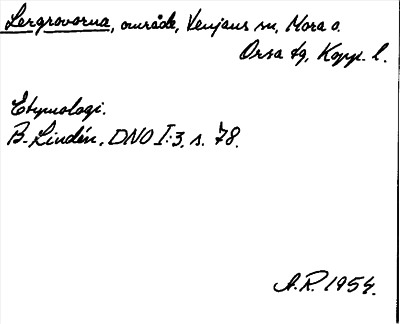 Lergrovorna, område, Venjans sn, Mora o.
Orsa tg, Kopp. l.
Etymologi.
B. Lindén, DNO I:3, s. 78.
A.R. 1954.